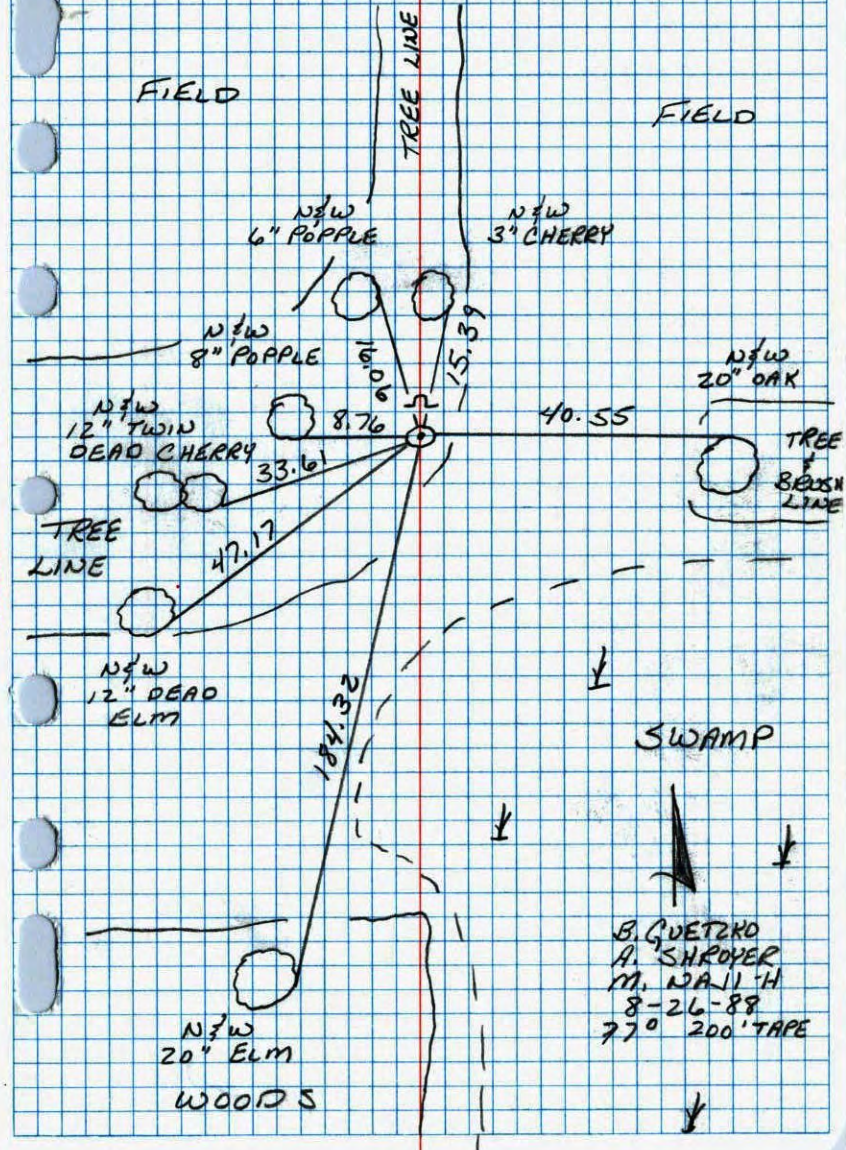 FIELD
TREE LINE
FIELD
N&W
6" POPPLE
N&W
3" CHERRY
N&W
8" POPPLE
16.06
15.39
N&W
20" OAK
N&W
12" TWIN
DEAD CHERRY
8.76
40.55
TREE
&
BRUSH
LINE
33.61
TREE
LINE
47.17
N&W
12" DEAD
ELM
184.32
SWAMP
B. GUETZKO
A. SHROYER
M. NAJI-H
8-26-88
77° 200' TAPE
N&W
20" ELM
WOODS